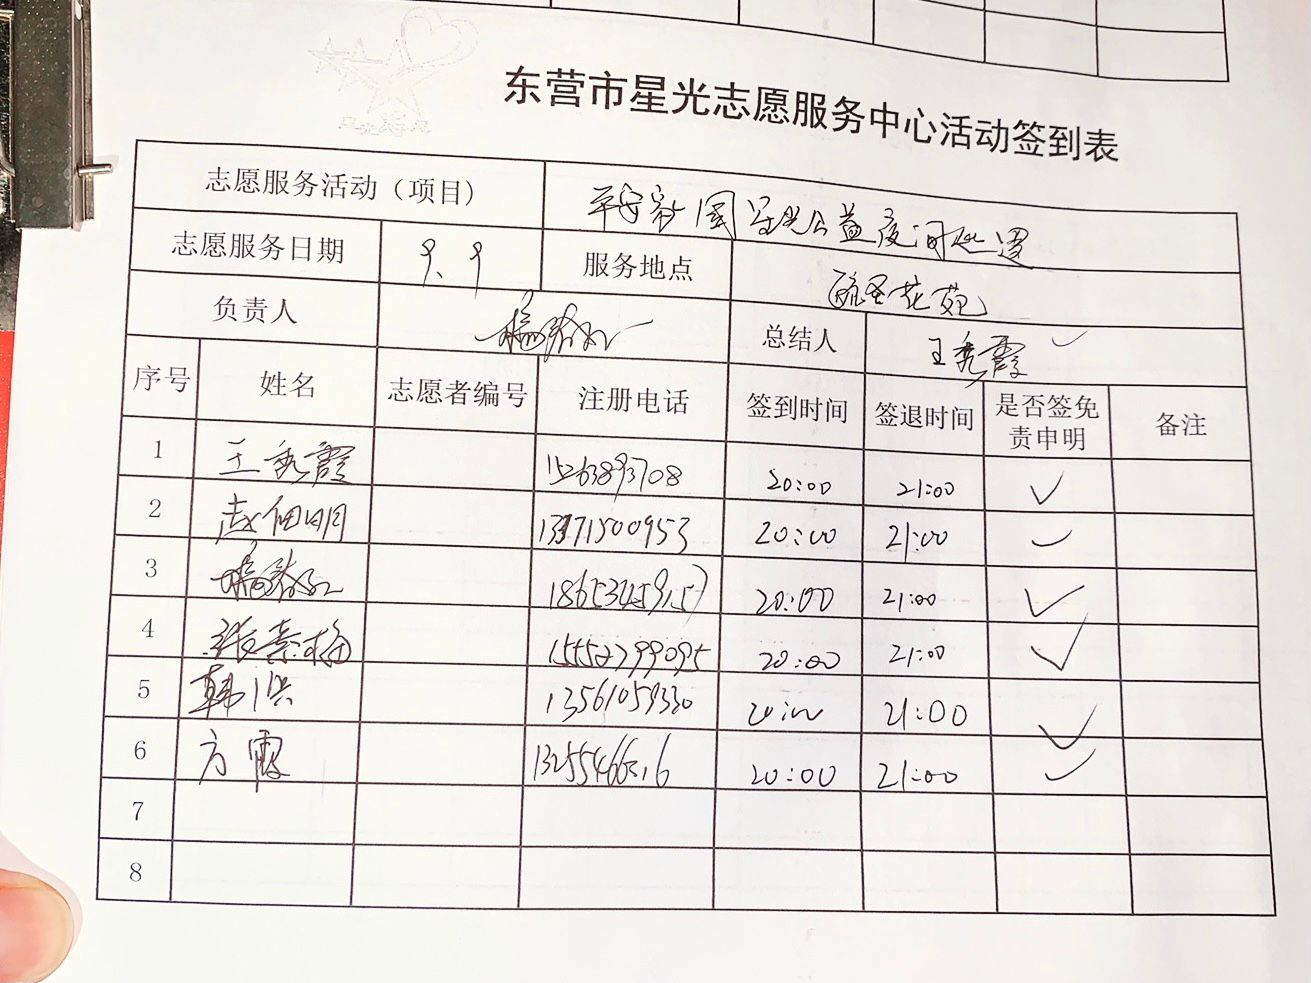 东营市星光志愿服务中心活动签到表
志愿服务活动（项目） 平安家园星光公益夜间巡逻
志愿服务日期 9.9 服务地点 花苑
负责人 总结人 王秀霞
序号 姓名 志愿者编号 注册电话 签到时间 签退时间 是否签免责申明 备注
1 王秀霞 15263893708 20:00 21:00 ✓
2 赵佃明 20:00 21:00 ✓
3 20:00 21:00 ✓
4 张素梅 15552799095 20:00 21:00 ✓
5 韩洪 13561059330 21:00 ✓
6 方霞 20:00 21:00 ✓
7
8